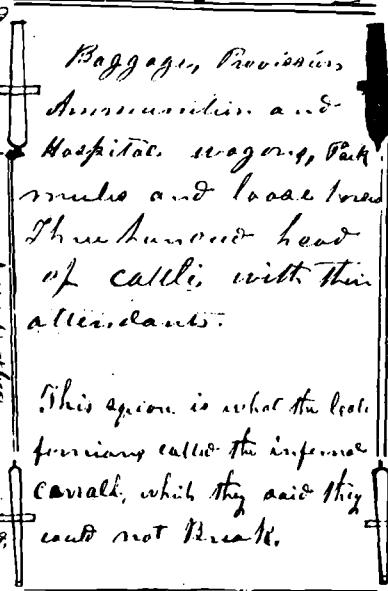 Baggage, Provision,
Ammunition and
Hospital wagons, Pack
mules and loose horses
Three hundred head
of cattle, with their
attendants.
This square is what the
called the infernal
Corralle, which they said they
could not Break.